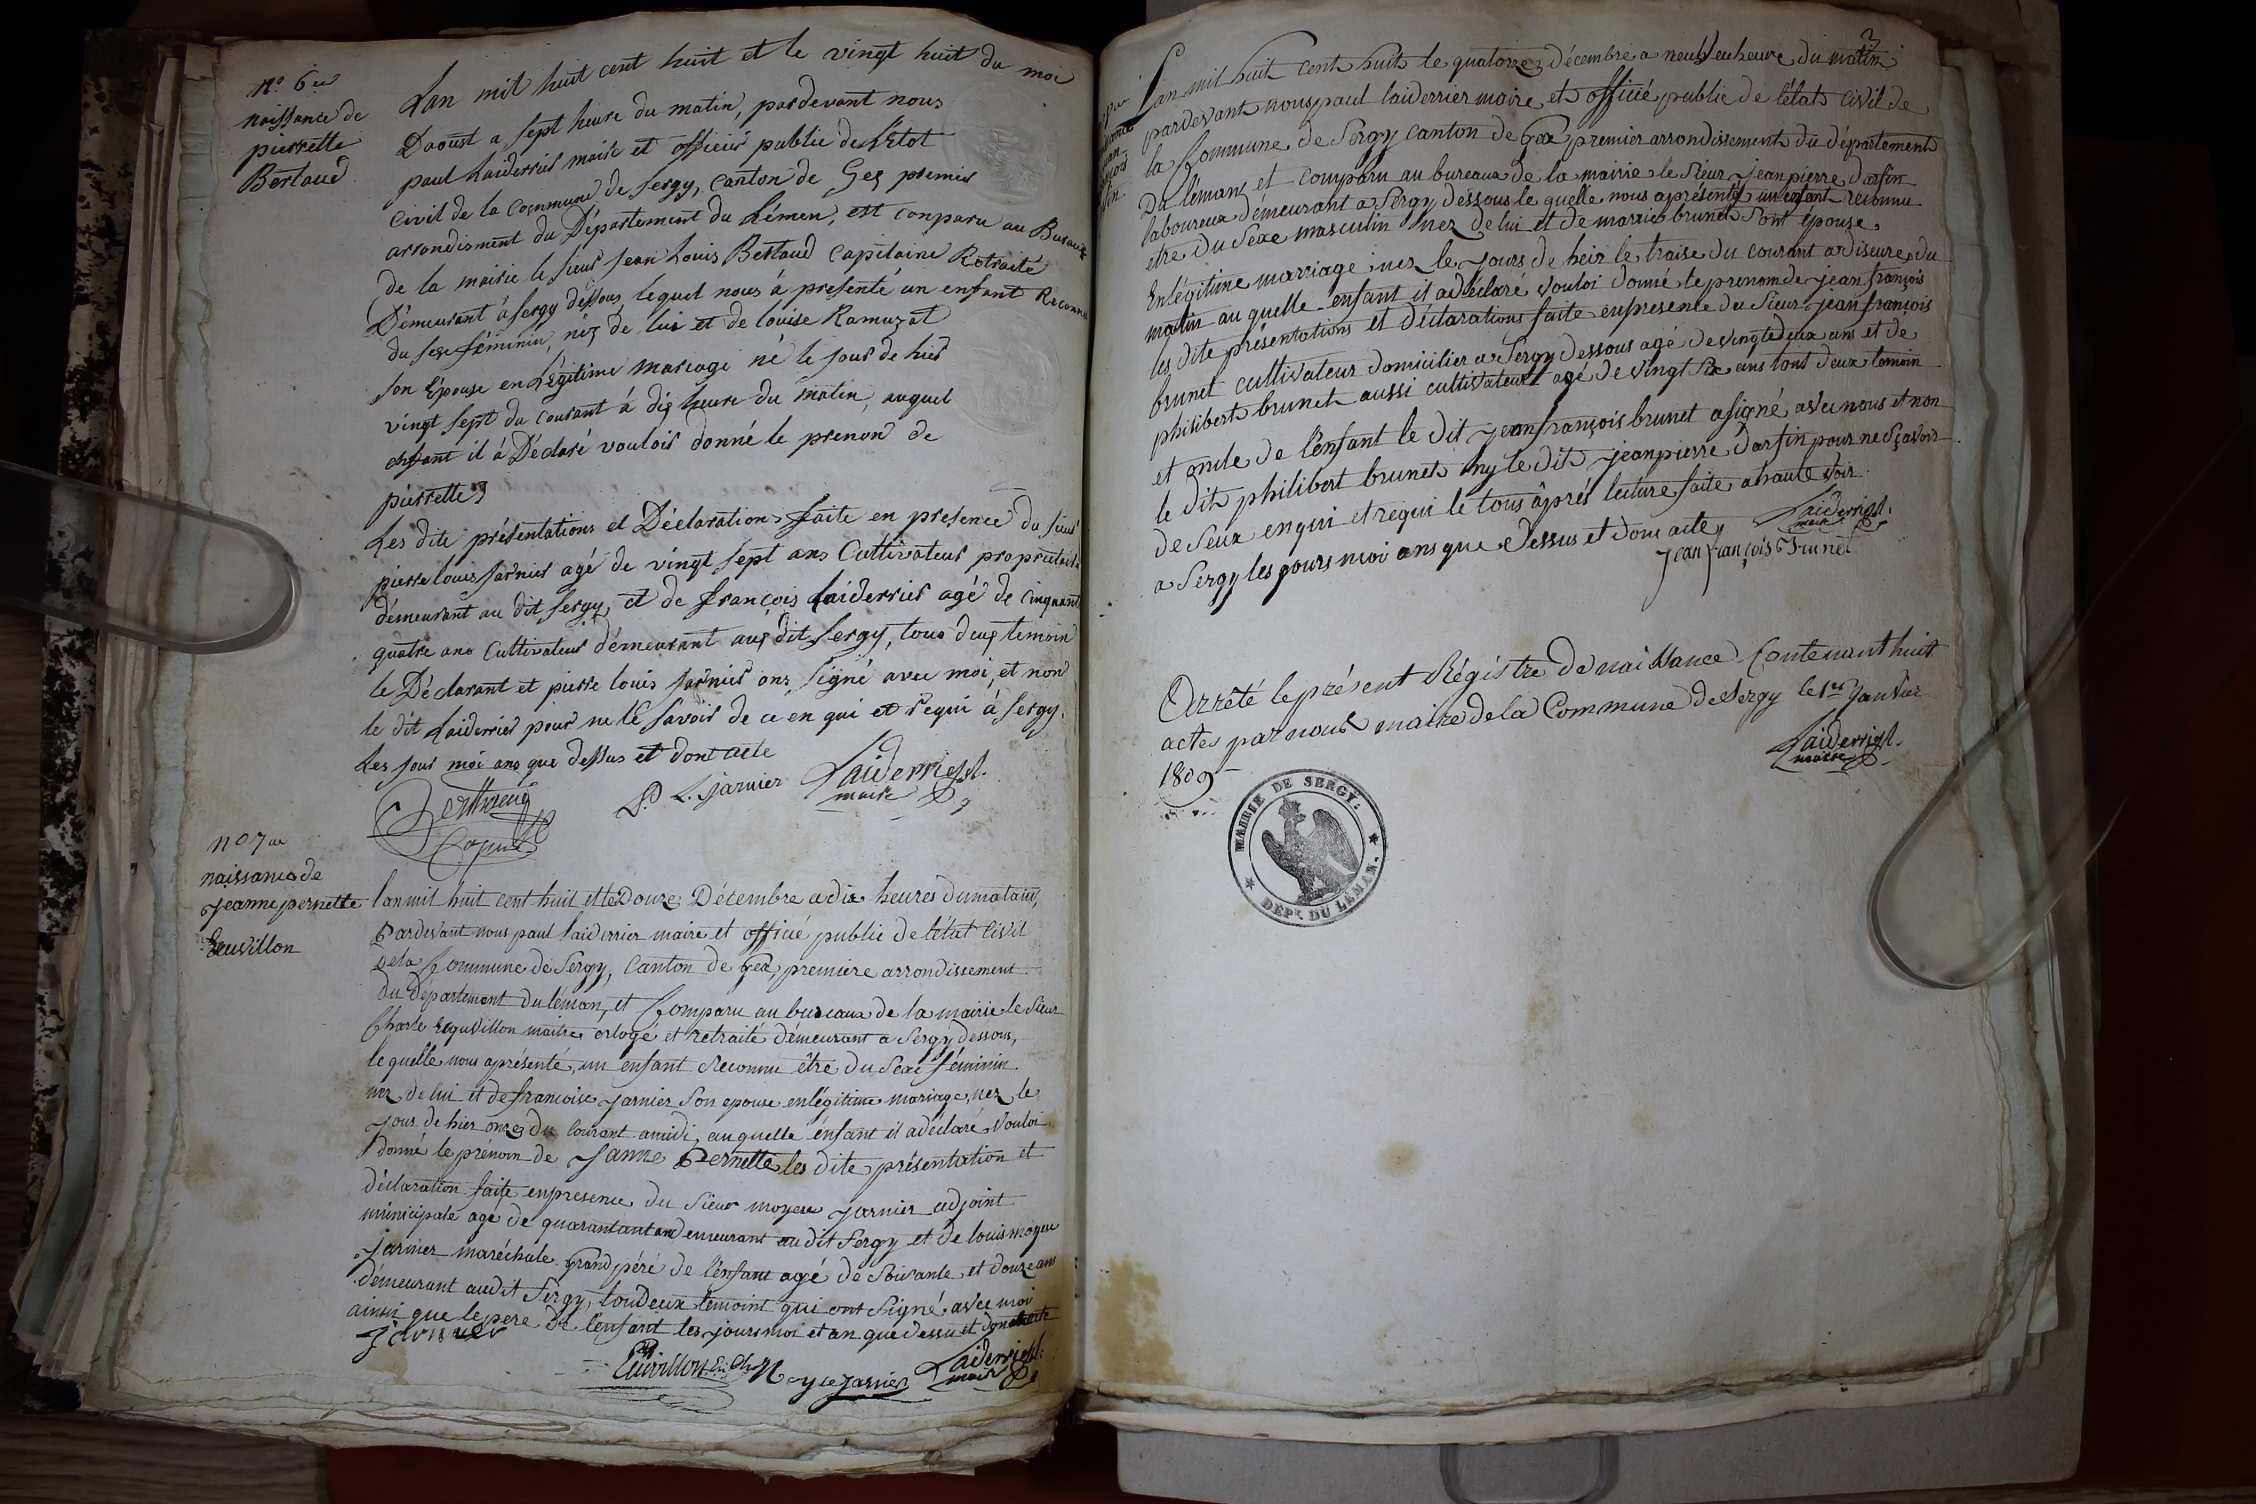 N.o 6.me
naissance de
pierrette
Bertaud
Lan mil huit cent huit et le vingt huit du moi
Daoust a sept heure du matin, pardevant nous
paul Laiderrier maire et officier public de l'Etat
Civil de la Commune de Sergy, canton de Gex premier
arrondisment du Département du Lémen, est conparu au Bureaux
de la mairie le sieur Jean Louis Bertaud Capitaine Retraité
Démeurant à Sergy déssous lequel nous à presenté un enfant Reconnu
du sexe féminin, néz de lui et de Louise Ramuzat
son Epouse en Légitime mariage né le jour de hier
vingt sept du courant à dix heure du matin, auquel
enfant il à Déclaré vouloir donné le prenon de
pierrette
Les dite présentations et Déclarations faite en presence du sieur
pierre louis Jarnier agé de vingt sept ans Cultivateur propriétaire
démeurant au dit Sergy, et de françois Laiderrier agé de cinquante
quatre ans Cultivateur démeurant aux dit Sergy, tous deux temoin
le Déclarant et pierre louis Jarnier ons signé avec moi, et non
le dit Laiderrier pour ne le savoir de ce en qui et requi à Sergy.
Les jour moi ans que dessus et dont acte
P. L. Jarnier Laiderrier
maire
N.o 7.me
naissance de
Jeanne pernette
Ecuvillon
lan mil huit cent huit et le Douze Décembre a dix heures du matain,
Pardevant nous paul laiderrier maire et officié public de l'état Civil
De la Commune de Sergy, Canton de Gex, premiere arrondissement
du département du léman, et Comparu au bureaux de la mairie le Sieur
Charle Ecquvillon maitre orlogé et retraité démeurant a Sergy dessous,
le quelle nous aprésenté, un enfant Reconnu être du Sexe féminin
nez de lui et de francoise Jarnier son epouse en légitime mariage, nez le
jour de hier onze du Courant amidi, au quelle énfant il a déclaré Vouloi
donné le prénom de Janne Pernette les dite présentation et
déclaration faite en presence du Sieur moyse Jarnier adjoint
municipale agé de quarantant and emeurant au dit Sergy et de louis moyse
Jarnier maréchale grand péré de l'énfant agé de Soisante et douze ans
démeurant au dit Sergy, tou deux témoint qui ont Signé avec moi
ainsi que le pere de l'enfant les jours moi et an que dessu et don acte
Jarnier
Ecuvillon
Jarnier Laiderrier
maire
3
Lan mil huit Cent huit le quatorze décembre a neuf heuheure du matin
pardevant nous paul laiderrier maire et officié public de l'état Civil de
la Commune de Sergy Canton de Gex premier arrondissement du département
Du lèman, et comparu au bureaux de la mairie le Sieur Jean pierre Darfin
laboureux démeurant a Sergy déssous le quelle nous aprésenté un enfant reconnu
etre du Sexe masculin nez de lui et de marrie brunet Sont épouse
En légitime mariage, nez le jours de heir le traise du courant a diseure du
matin au quelle enfant il a déclaré vouloi donné le prenom de jean françois
les dite présentations et déclarations faite en presente du Sieur jean françois
brunet cultivateur domicilier a Sergy dessous agé de vingte deux ans et de
philibert brunet aussi cultivateur agé de vingt Six ans tout deux temoin
et oncle de l'enfant le dit jean françois brunet a signé avec nous et non
le dit philibert brunet ny le dit jean pierre Darfin pour ne Sçavoir
de Seux enqui et requi le tous âprés lecture faite a haute voir
a Sergy les jours moi ans que dessus et dom acte
Laiderrier
maire
Jean françois Brunet
Arrêté le présent Régistre de naissance Contenant huit
actes par nous maire de la Commune de Sergy le 1.er Janvier
1809
Laiderrier
maire
MAIRIE DE SERGY.
DEPt. DU LÉMAN.